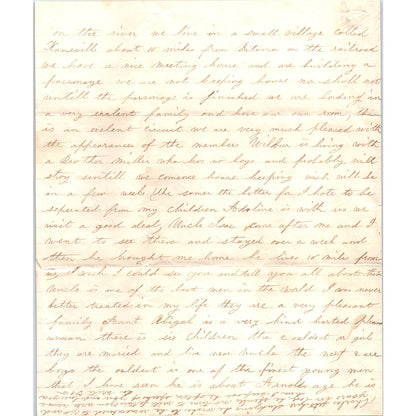 on the river we live on a small village called
about 10 miles from on the railroad
we have a nice meeting house and are building a
parsonage we are not keeping house no shall not
untill the parsonage is finished we are bording in
a very exelent family and have our own room this
is an exelent Circuit we are very much pleased with
the appearances of the members Wilbur is living with
a Brother Miller who has no boys and probably will
stay untill we comence house keeping wich will be
in a few weeks the sooner the better for I hate to be
seperated from my children Adoline is with us we
visit a good deal Uncle came after me and I
went to see them and stayed over a week and
then he bought me home he lives 10 miles from
us I wish I could see you and tell you all about them
Uncle is one of the best men in the world I was never
better treated in my life they are a very pleasant
family Aunt Abigal is a very kind harted
woman there is six children the 2 oldest a gals
they are maried and live near Uncle the next 2 are
boys the oldest is one of the finest young men
that I have seen he is about Arnolds age he is